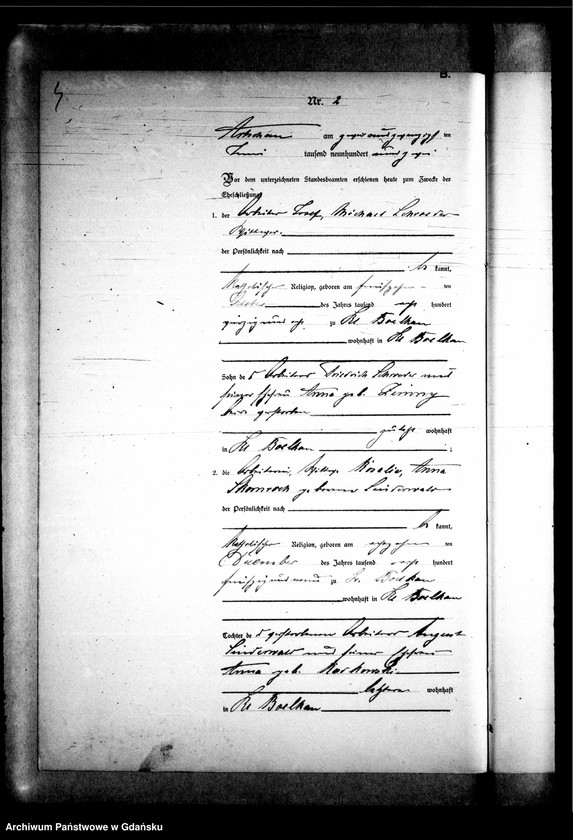 B.
Nr. 2
am zwei und zwanzig ten
Juni tausend neunhundert und zwei
Vor dem unterzeichneten Standesbeamten erschienen heute zum Zwecke der
Eheschließung:
1. der Arbeiter Josef, Michael Schroeder
der Persönlichkeit nach
be kannt,
katholischer Religion, geboren am ten
des Jahres tausend acht hundert
zu Kl Boelkau
wohnhaft in Kl Boelkau
Sohn de s Arbeiters Friedrich Schroeder und
seiner Ehefrau Anna geb.
beide gestorben
zuletzt wohnhaft
in Kl Boelkau ;
2. die Arbeiterin, Rosalie, Anna
geborene Linderwald
der Persönlichkeit nach
be kannt,
katholischer Religion, geboren am ten
Dezember des Jahres tausend acht hundert
zu Kl. Boelkau
wohnhaft in Kl Boelkau
Tochter de s gestorbenen Arbeiters August
Linderwald und seiner Ehefrau
Anna geb.
letztere wohnhaft
in Kl Boelkau
Archiwum Państwowe w Gdańsku